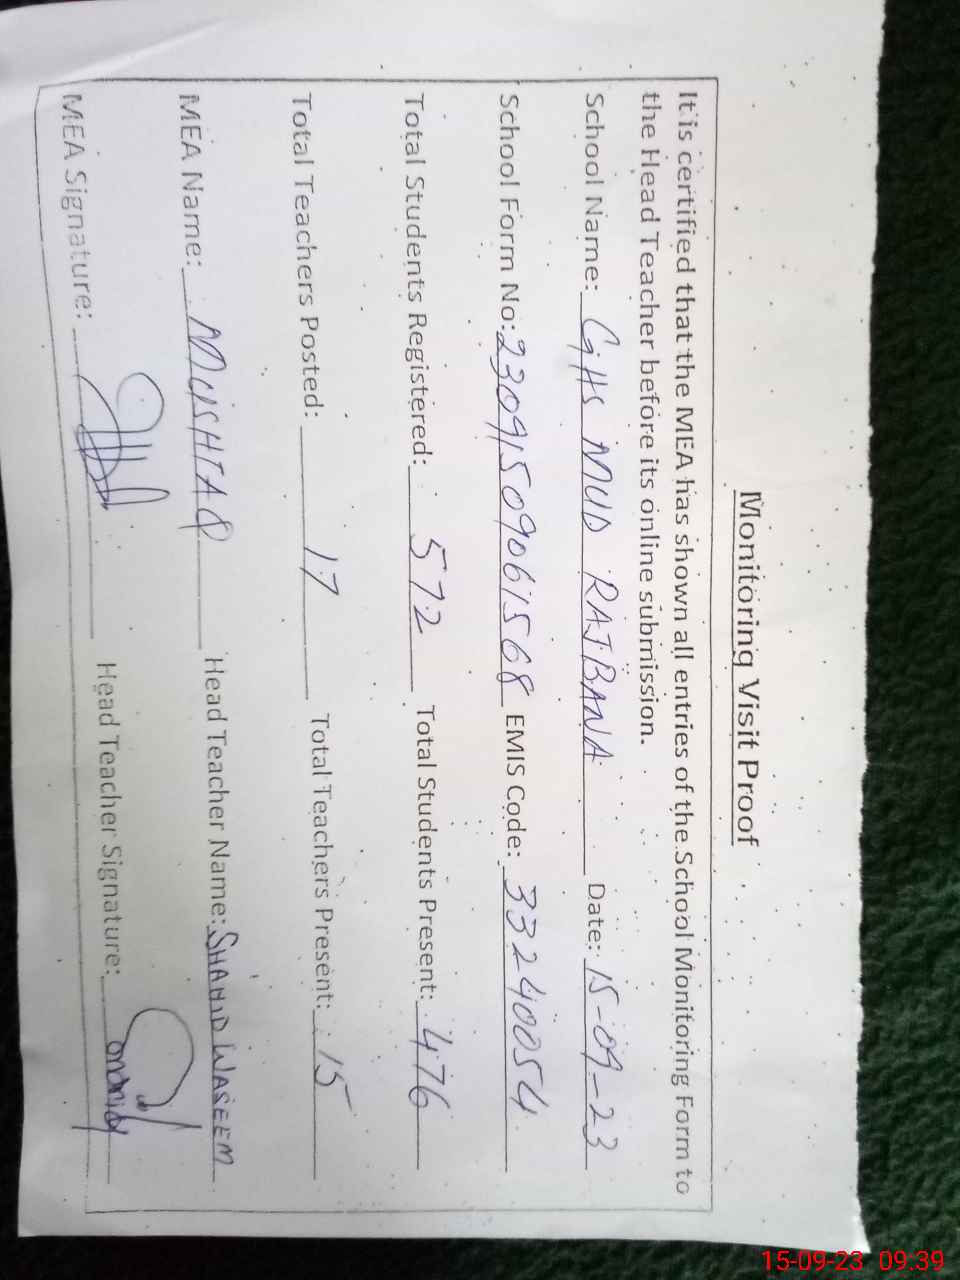 Monitoring Visit Proof
It is certified that the MEA has shown all entries of the School Monitoring Form to
the Head Teacher before its online submission.
School Name: GHS MUD RAJBANA Date: 15-09-23
School Form No: 23091509061568 EMIS Code: 33240054
Total Students Registered: 572 Total Students Present: 476
Total Teachers Posted: 17 Total Teachers Present: 15
MEA Name: MUSHTAQ Head Teacher Name: SHAHID WASEEM
MEA Signature: Head Teacher Signature:
15-09-23 09:39